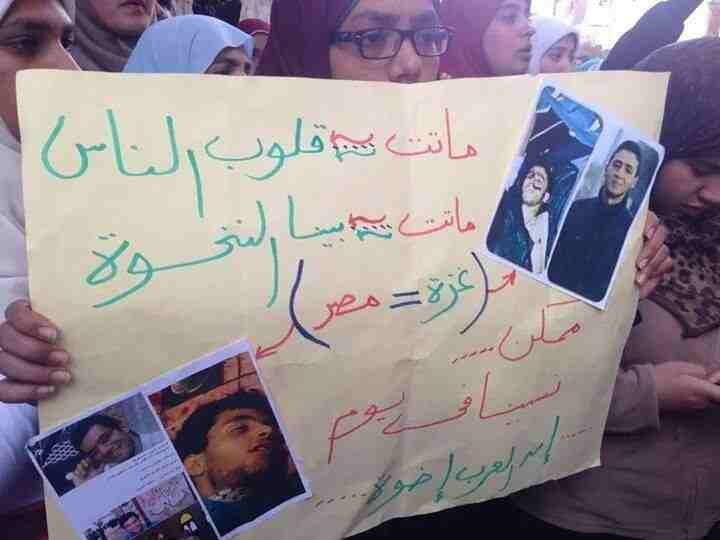 ماتت قلوب الناس
ماتت بينا النخوة
(غزة = مصر)
ممكن .....
نسينا في يوم
.... إن العرب إخوة .....